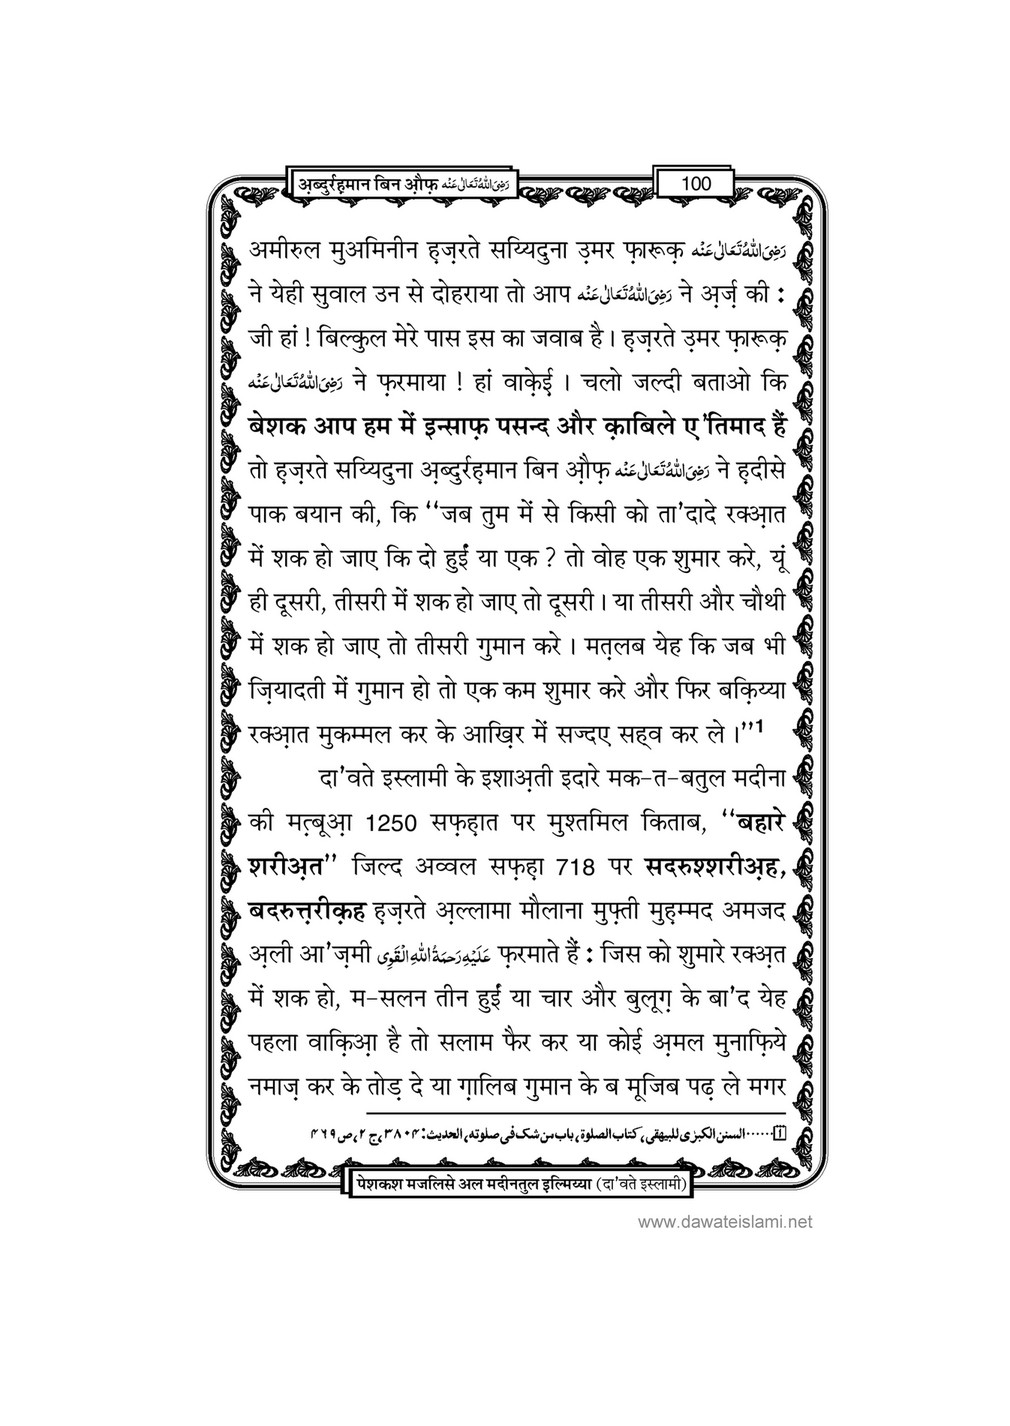 अ़ब्दुर्रह़मान बिन औ़फ़ رَضِیَ اللہُ تَعَالٰی عَنْہ
100
अमीरुल मुअमिनीन ह़ज़रते सय्यिदुना उ़मर फ़ारूक़ رَضِیَ اللہُ تَعَالٰی عَنْہ
ने येही सुवाल उन से दोहराया तो आप رَضِیَ اللہُ تَعَالٰی عَنْہ ने अ़र्ज़ की :
जी हां ! बिल्कुल मेरे पास इस का जवाब है। ह़ज़रते उ़मर फ़ारूक़
رَضِیَ اللہُ تَعَالٰی عَنْہ ने फ़रमाया ! हां वाक़ेई । चलो जल्दी बताओ कि
बेशक आप हम में इन्साफ़ पसन्द और क़ाबिले ए'तिमाद हैं
तो ह़ज़रते सय्यिदुना अ़ब्दुर्रह़मान बिन औ़फ़ رَضِیَ اللہُ تَعَالٰی عَنْہ ने ह़दीसे
पाक बयान की, कि ‘‘जब तुम में से किसी को ता'दादे रक्अ़त
में शक हो जाए कि दो हुईं या एक ? तो वोह एक शुमार करे, यूं
ही दूसरी, तीसरी में शक हो जाए तो दूसरी। या तीसरी और चौथी
में शक हो जाए तो तीसरी गुमान करे । मत़लब येह कि जब भी
ज़ियादती में गुमान हो तो एक कम शुमार करे और फिर बक़िय्या
रक्अ़त मुकम्मल कर के आख़िर में सज्दए सह्व कर ले।’’1
दा'वते इस्लामी के इशाअ़ती इदारे मक-त-बतुल मदीना
की मत़्बूआ़ 1250 सफ़ह़ात पर मुश्तमिल किताब, ‘‘बहारे
शरीअ़त’’ जिल्द अव्वल सफ़ह़ा 718 पर सदरुश्शरीअ़ह,
बदरुत़्त़रीक़ह ह़ज़रते अ़ल्लामा मौलाना मुफ़्ती मुह़म्मद अमजद
अ़ली आ'ज़मी عَلَیْہِ رَحمَۃُ اللہِ الْقَوِی फ़रमाते हैं : जिस को शुमारे रक्अ़त
में शक हो, म-सलन तीन हुईं या चार और बुलूग़ के बा'द येह
पहला वाक़िआ़ है तो सलाम फैर कर या कोई अ़मल मुनाफ़िये
नमाज़ कर के तोड़ दे या ग़ालिब गुमान के ब मूजिब पढ़ ले मगर
1......السنن الکبرٰی للبیھقی، کتاب الصلوۃ، باب من شک فی صلوته، الحدیث: ۳۸۰۴، ج۲، ص۴۶۹
पेशकश मजलिसे अल मदीनतुल इल्मिय्या (दा'वते इस्लामी)
www.dawateislami.net